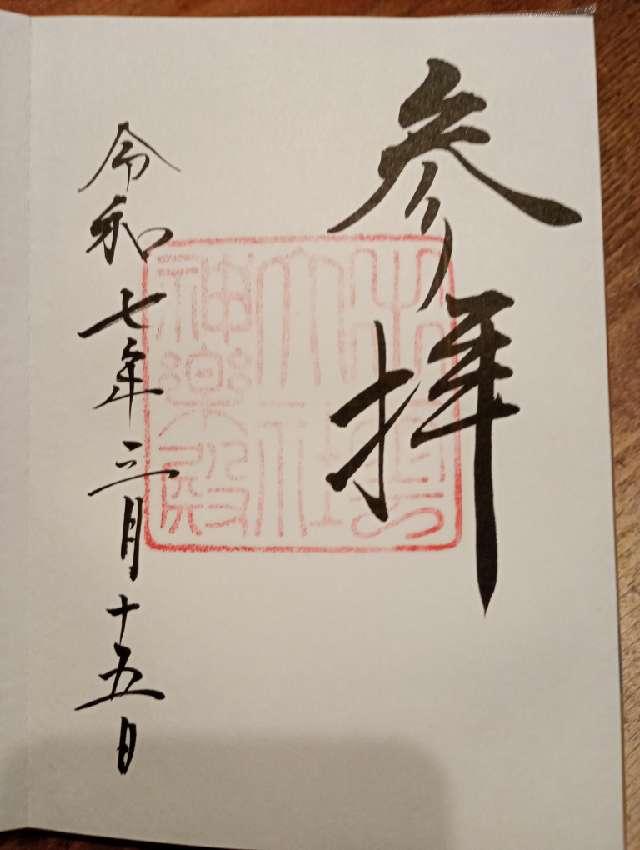 参拝
出雲
大社
神樂殿
令和七年三月十五日